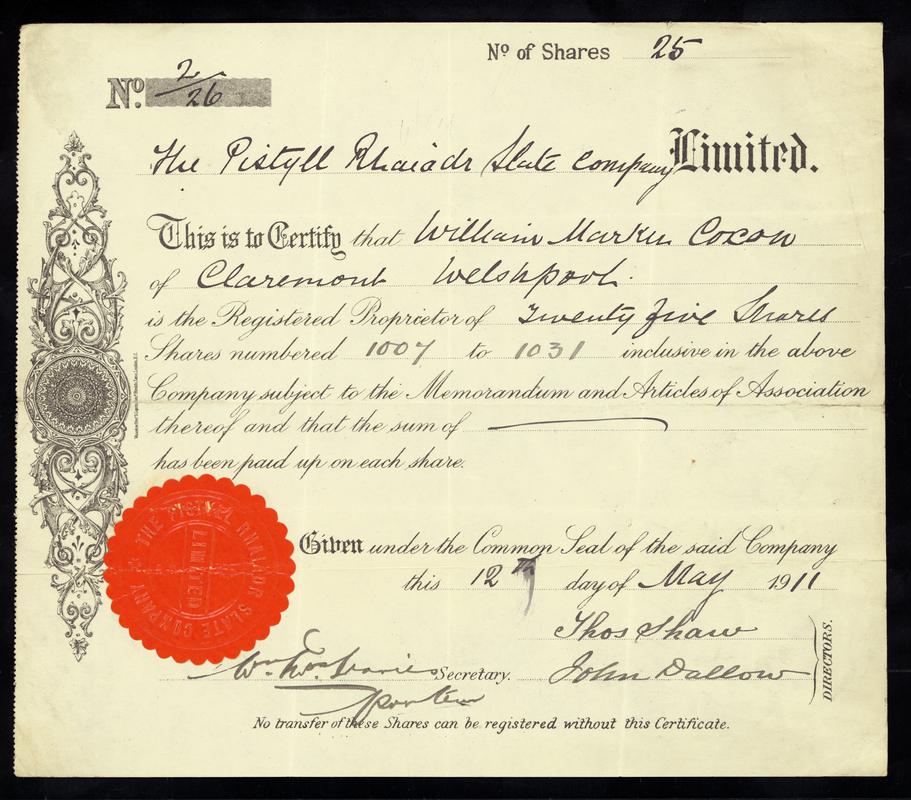 Nº of Shares 25
Nº. 2/26
The Pistyll Rhaiadr Slate Company Limited.
This is to Certify that William Martin Coxon
of Claremont Welshpool
is the Registered Proprietor of Twenty five Shares
Shares numbered 1007 to 1031 inclusive in the above
Company subject to the Memorandum and Articles of Association
thereof and that the sum of
has been paid up on each share.
THE PISTYLL RHAIADR SLATE COMPANY
LIMITED
Given under the Common Seal of the said Company
this 12th day of May 1911
Thos Shaw
John Dallow
DIRECTORS.
Secretary.
No transfer of these Shares can be registered without this Certificate.